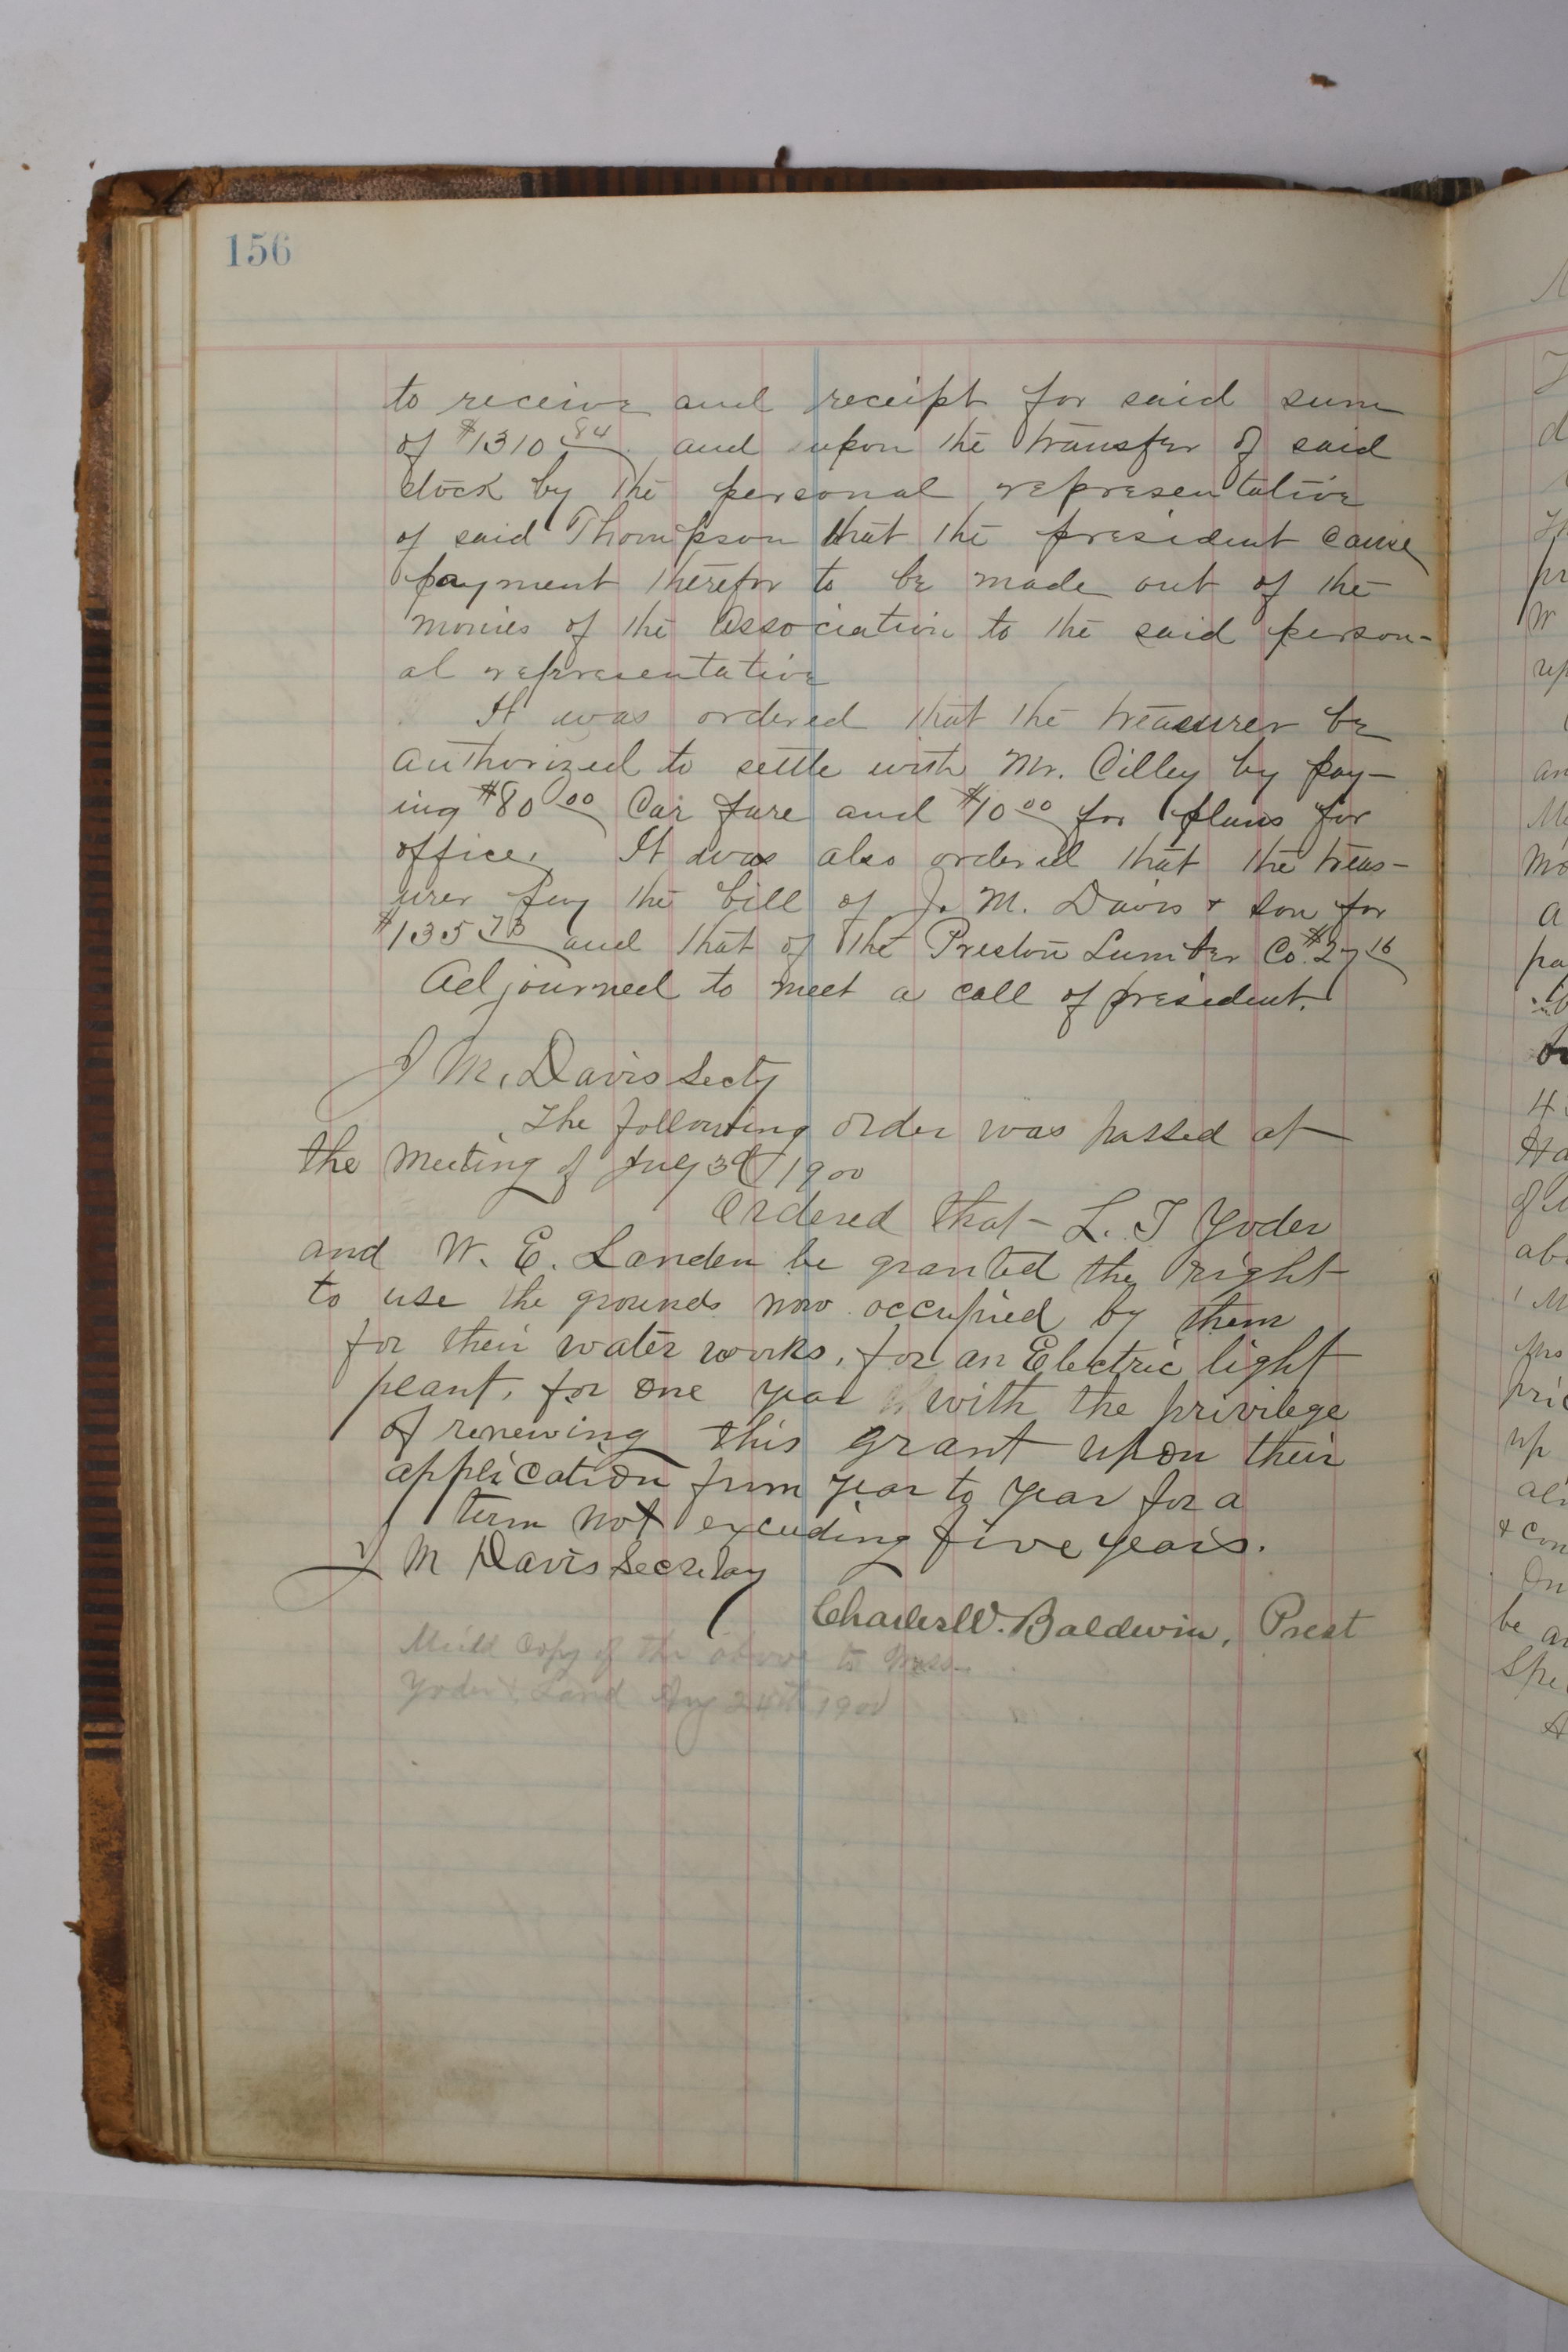 156
to receive and receipt for said sum
of $1310 84 and upon the transfer of said
stock by the personal representative
of said Thompson that the president cause
payment therefor to be made out of the
monies of the Association to the said person-
al representative
It was ordered that the treasurer be
authorized to settle with Mr. Cilley by pay-
ing $80 00 Car fare and $10 00 for plans for
office. It was also ordered that the treas-
urer pay the bill of J. M. Davis & Son for
$135 73 and that of the Preston Lumber Co. $27 16
Adjourned to meet a call of president.
J M. Davis Secty
The following order was passed at
the Meeting of 1900
Ordered that L. T Yoder
and W. E. Landen be granted the right
to use the grounds now occupied by them
for their water works, for an Electric light
plant, for one year with the privilege
of renewing this grant upon their
application from year to year for a
term not exceeding five years.
J M Davis Secretary
Charles W. Baldwin, Prest
Copy of the above to
Yoder & Land Aug 1900